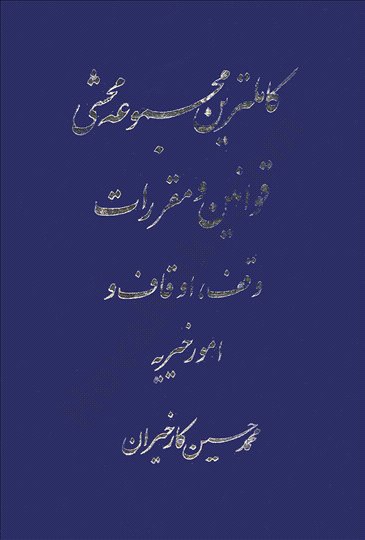 کاملترین مجموعه محشی
قوانین و مقررات
وقف، اوقاف و
امور خیریه
محمد حسین کارخیران